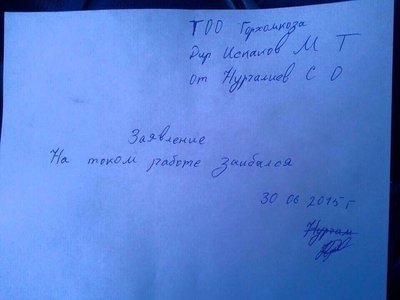 ТОО Горхимкоза
Дир Испанов М Т
от Нургалиев С О
Заявление
На таком работе Заибался
30 06 2015 г
Нургам